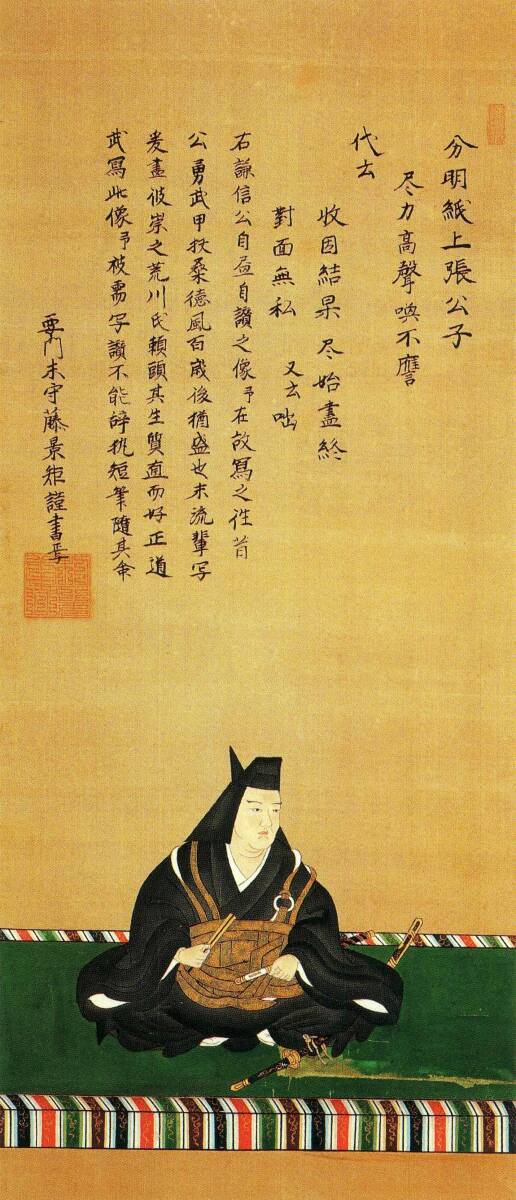 分明紙上張公子
尽力高聲喚不譍
代云
收因結果 尽始盡終
對面無私 又云咄
右謙信公自畫自讃之像予在故寫之徃昔
公勇武甲扶桑德風百歳後猶盛也末流輩写
爰盡彼崇之荒川氏頼其生質直而好正道
武寫此像予被需写讃不能辞短筆隨其命
要門末守藤景矩謹書焉